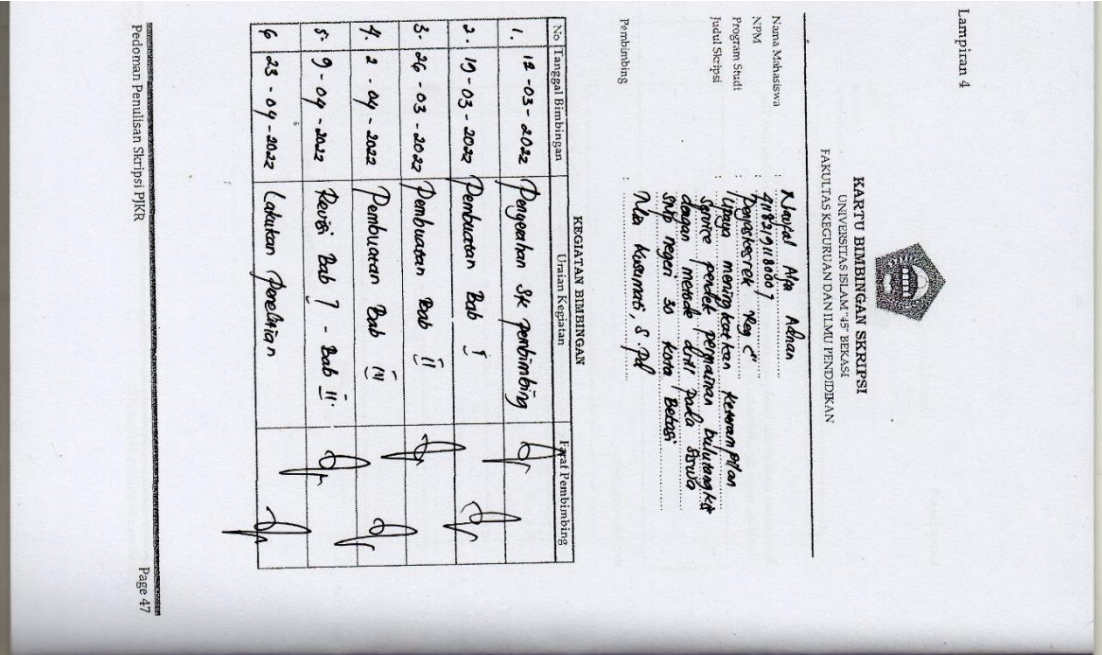 Lampiran 4
KARTU BIMBINGAN SKRIPSI
UNIVERSITAS ISLAM "45" BEKASI
FAKULTAS KEGURUAN DAN ILMU PENDIDIKAN
Nama Mahasiswa : Adnan
NPM : 41182191180007
Program Studi : Penjaskesrek Reg C
Judul Skripsi : Upaya meningkatkan keterampilan
Service pendek permainan bulutangkis
dengan metode drill pada siswa
SMP negeri 30 Kota Bekasi
Pembimbing : Nia Kusumati, S.Pd
KEGIATAN BIMBINGAN
No Tanggal Bimbingan Uraian Kegiatan Paraf Pembimbing
1. 12-03-2022 Pengerahan SK pembimbing
2. 19-03-2022 Pembuatan Bab I
3. 26-03-2022 Pembuatan Bab II
4. 2-04-2022 Pembuatan Bab III
5. 9-04-2022 Revisi Bab I - Bab III.
6 23-04-2022 Lakukan Penelitian
Pedoman Penulisan Skripsi PJKR Page 47